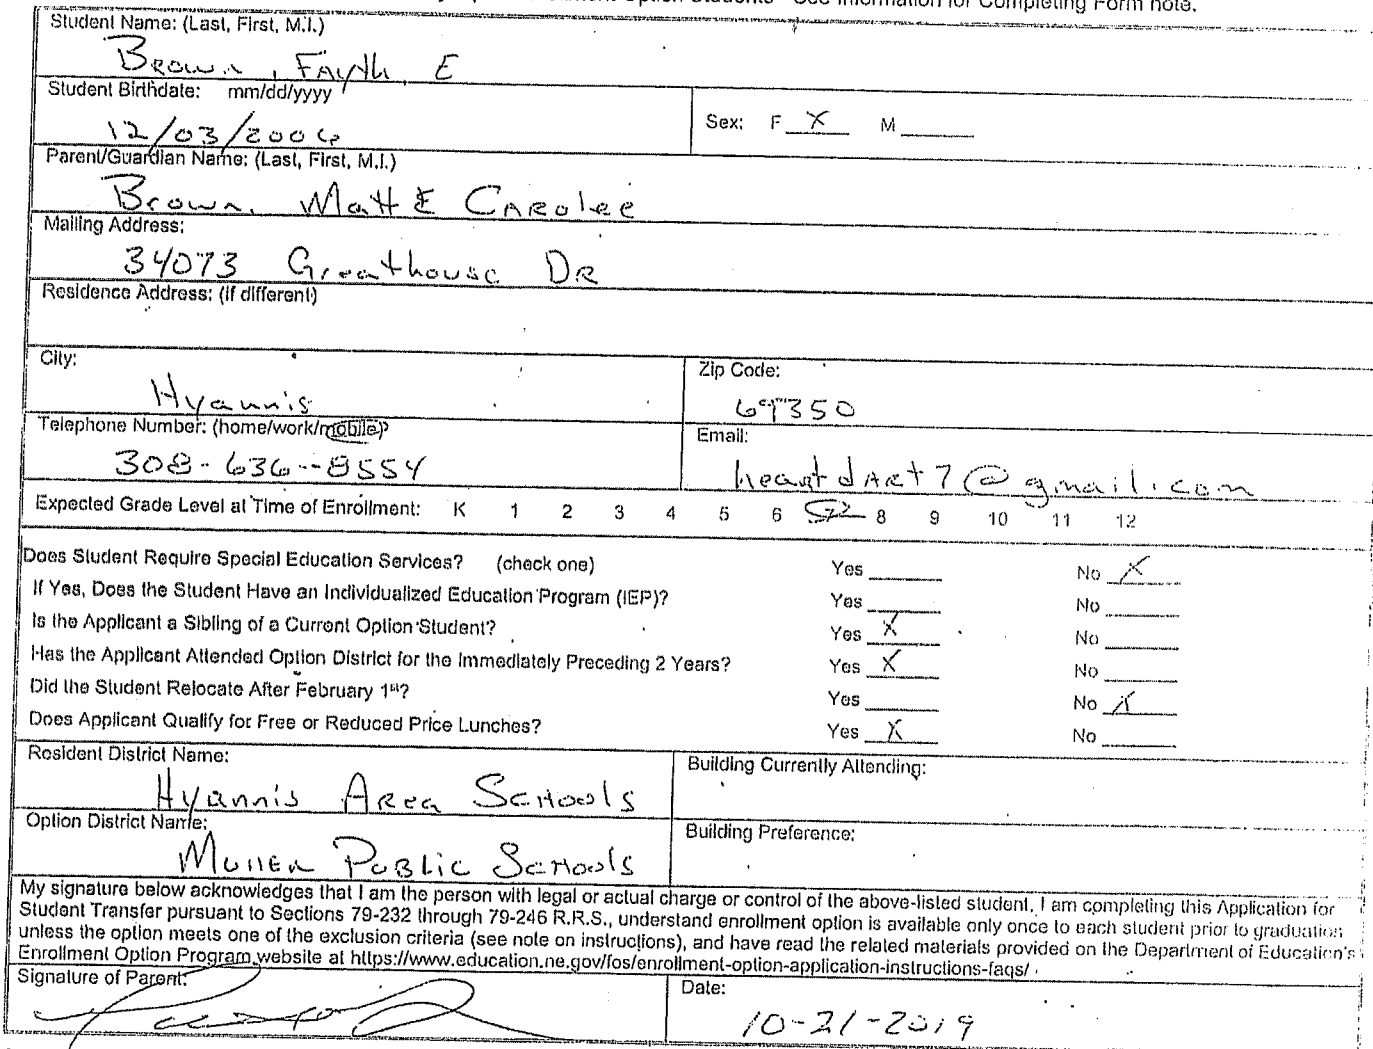 Option Students - See Information for Completing Form note.
Student Name: (Last, First, M.I.)
Brown, Fayth, E
Student Birthdate: mm/dd/yyyy
12/03/2006
Sex: F X M
Parent/Guardian Name: (Last, First, M.I.)
Brown, Matt & Carolee
Mailing Address:
34073 Greathouse DR
Residence Address: (if different)
City:
Hyannis
Zip Code:
69350
Telephone Number: (home/work/mobile)
308-636-8554
Email:
heartdart7@gmail.com
Expected Grade Level at Time of Enrollment: K 1 2 3 4 5 6 7 8 9 10 11 12
Does Student Require Special Education Services? (check one) Yes No X
If Yes, Does the Student Have an Individualized Education Program (IEP)? Yes No
Is the Applicant a Sibling of a Current Option Student? Yes X No
Has the Applicant Attended Option District for the Immediately Preceding 2 Years? Yes X No
Did the Student Relocate After February 1st? Yes No X
Does Applicant Qualify for Free or Reduced Price Lunches? Yes X No
Resident District Name:
Hyannis Area Schools
Building Currently Attending:
Option District Name:
Mullen Public Schools
Building Preference:
My signature below acknowledges that I am the person with legal or actual charge or control of the above-listed student, I am completing this Application for
Student Transfer pursuant to Sections 79-232 through 79-246 R.R.S., understand enrollment option is available only once to each student prior to graduation
unless the option meets one of the exclusion criteria (see note on instructions), and have read the related materials provided on the Department of Education's
Enrollment Option Program website at https://www.education.ne.gov/fos/enrollment-option-application-instructions-faqs/.
Signature of Parent:
Date:
10-21-2019